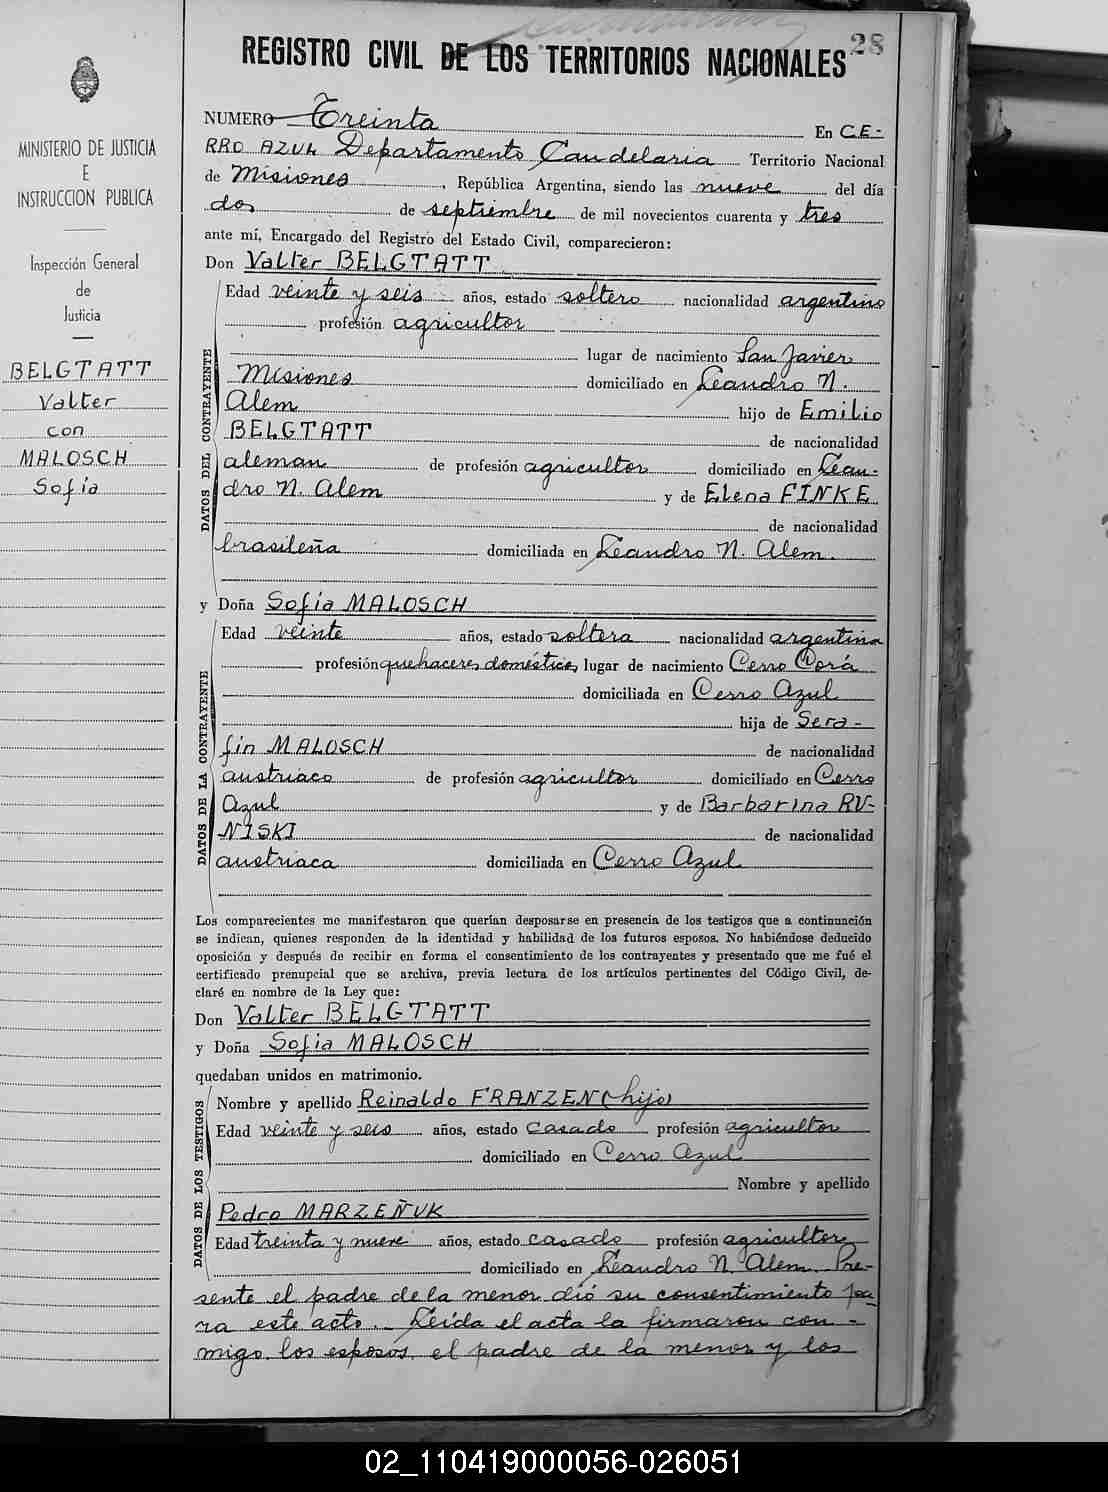 28
REGISTRO CIVIL DE LOS TERRITORIOS NACIONALES
MINISTERIO DE JUSTICIA
E
INSTRUCCION PUBLICA
Inspección General
de
Justicia
BELGTATT
Valter
con
MALOSCH
Sofía
NUMERO Treinta En CE-
RRO AZUL Departamento Candelaria Territorio Nacional
de Misiones, República Argentina, siendo las nueve del día
dos de septiembre de mil novecientos cuarenta y tres
ante mí, Encargado del Registro del Estado Civil, comparecieron:
Don Valter BELGTATT
DATOS DEL CONTRAYENTE
Edad veinte y seis años, estado soltero nacionalidad argentino
profesión agricultor
lugar de nacimiento San Javier
Misiones domiciliado en Leandro N.
Alem hijo de Emilio
BELGTATT de nacionalidad
aleman de profesión agricultor domiciliado en Lean-
dro N. Alem y de Elena FINKE
de nacionalidad
brasileña domiciliada en Leandro N. Alem.
y Doña Sofia MALOSCH
DATOS DE LA CONTRAYENTE
Edad veinte años, estado soltera nacionalidad argentina
profesión quehaceres domésticos lugar de nacimiento Cerro Corá
domiciliada en Cerro Azul
hija de Sera-
fin MALOSCH de nacionalidad
austriaco de profesión agricultor domiciliado en Cerro
Azul y de Barbarina RU-
NISKI de nacionalidad
austriaca domiciliada en Cerro Azul
Los comparecientes me manifestaron que querían desposarse en presencia de los testigos que a continuación
se indican, quienes responden de la identidad y habilidad de los futuros esposos. No habiéndose deducido
oposición y después de recibir en forma el consentimiento de los contrayentes y presentado que me fué el
certificado prenupcial que se archiva, previa lectura de los artículos pertinentes del Código Civil, de-
claré en nombre de la Ley que:
Don Valter BELGTATT
y Doña Sofia MALOSCH
quedaban unidos en matrimonio.
DATOS DE LOS TESTIGOS
Nombre y apellido Reinaldo FRANZEN (hijo)
Edad veinte y seis años, estado casado profesión agricultor
domiciliado en Cerro Azul
Nombre y apellido
Pedro MARZEÑUK
Edad treinta y nueve años, estado casado profesión agricultor
domiciliado en Leandro N. Alem. Pre-
sente el padre de la menor dió su consentimiento pa-
ra este acto. Leída el acta la firmaron con-
migo los esposos, el padre de la menor y los
02_110419000056-026051